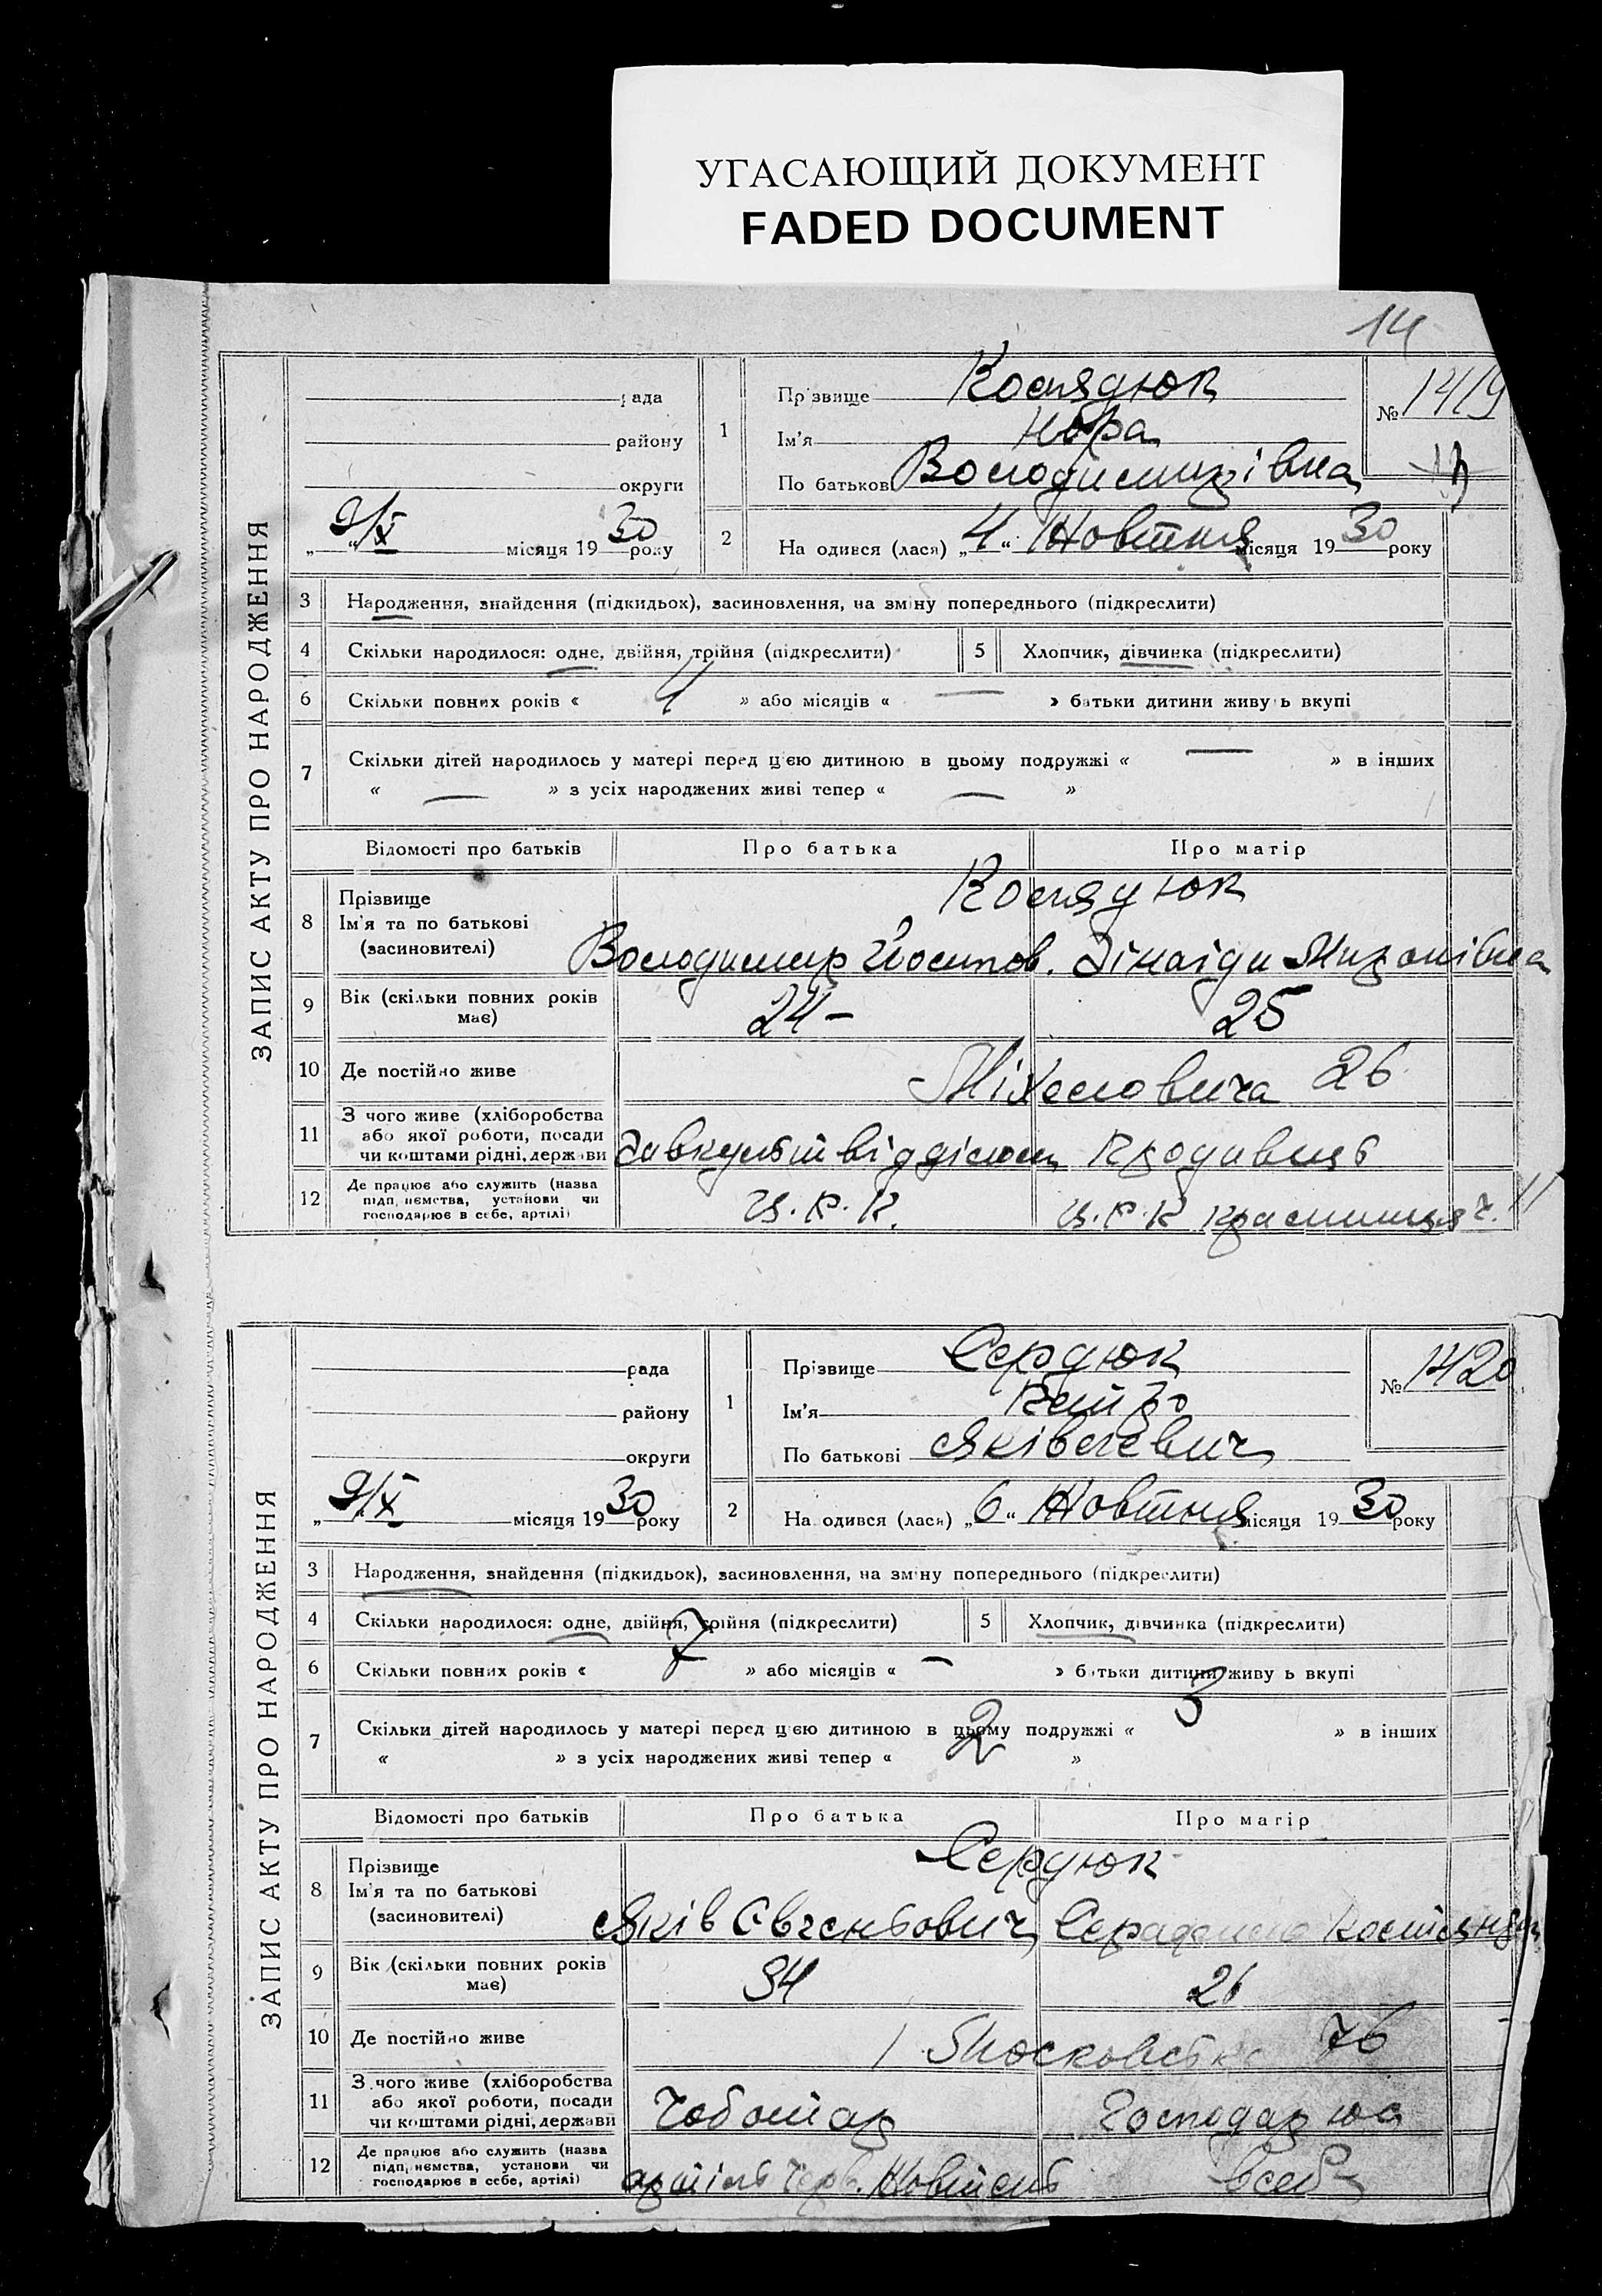 УГАСАЮЩИЙ ДОКУМЕНТ
FADED DOCUMENT
14
ЗАПИС АКТУ ПРО НАРОДЖЕННЯ
рада
району
округи
„ 9/X “ місяця 1930 року
1
Прізвище Костядюк
Ім'я Нора
По батькові Володимирівна
№ 1419
2
На одився (лася) „4“ Жовтня місяця 1930 року
3 Народження, знайдення (підкидьок), засиновлення, на зміну попереднього (підкреслити)
4 Скільки народилося: одне, двійня, трійня (підкреслити) 5 Хлопчик, дівчинка (підкреслити)
6 Скільки повних років « 4 » або місяців « — » батьки дитини живуть вкупі
7 Скільки дітей народилось у матері перед цією дитиною в цьому подружжі « — » в інших
« — » з усіх народжених живі тепер « — »
Відомості про батьків Про батька Про матір
8 Прізвище
Ім'я та по батькові
(засиновителі)
Костядюк
Володимир Йосипов. Зінаїда
9 Вік (скільки повних років має) 24 – 25
10 Де постійно живе 26
11 З чого живе (хліборобства
або якої роботи, посади
чи коштами рідні, держави
Завкультвідділом Продавець
12 Де працює або служить (назва
підприємства, установи чи
господарює в себе, артілі)
Ц.Р.К. Ц.Р.К крамниця ч. 11
ЗАПИС АКТУ ПРО НАРОДЖЕННЯ
рада
району
округи
„ 9/X місяця 1930 року
1
Прізвище Сердюк
Ім'я
По батькові Яківлевич
№ 1420
2
На одився (лася) „6“ Жовтня місяця 1930 року
3 Народження, знайдення (підкидьок), засиновлення, на зміну попереднього (підкреслити)
4 Скільки народилося: одне, двійня, трійня (підкреслити) 5 Хлопчик, дівчинка (підкреслити)
6 Скільки повних років « 7 » або місяців « – » батьки дитини живуть вкупі
7 Скільки дітей народилось у матері перед цією дитиною в цьому подружжі « 3 » в інших
« » з усіх народжених живі тепер « 2 »
Відомості про батьків Про батька Про матір
8 Прізвище
Ім'я та по батькові
(засиновителі)
Сердюк
Яків Євгеньович
9 Вік (скільки повних років має) 34 26
10 Де постійно живе Московська 76
11 З чого живе (хліборобства
або якої роботи, посади
чи коштами рідні, держави
Чоботар Господарює
12 Де працює або служить (назва
підприємства, установи чи
господарює в себе, артілі)
артіль Черв. Жовтень в себе